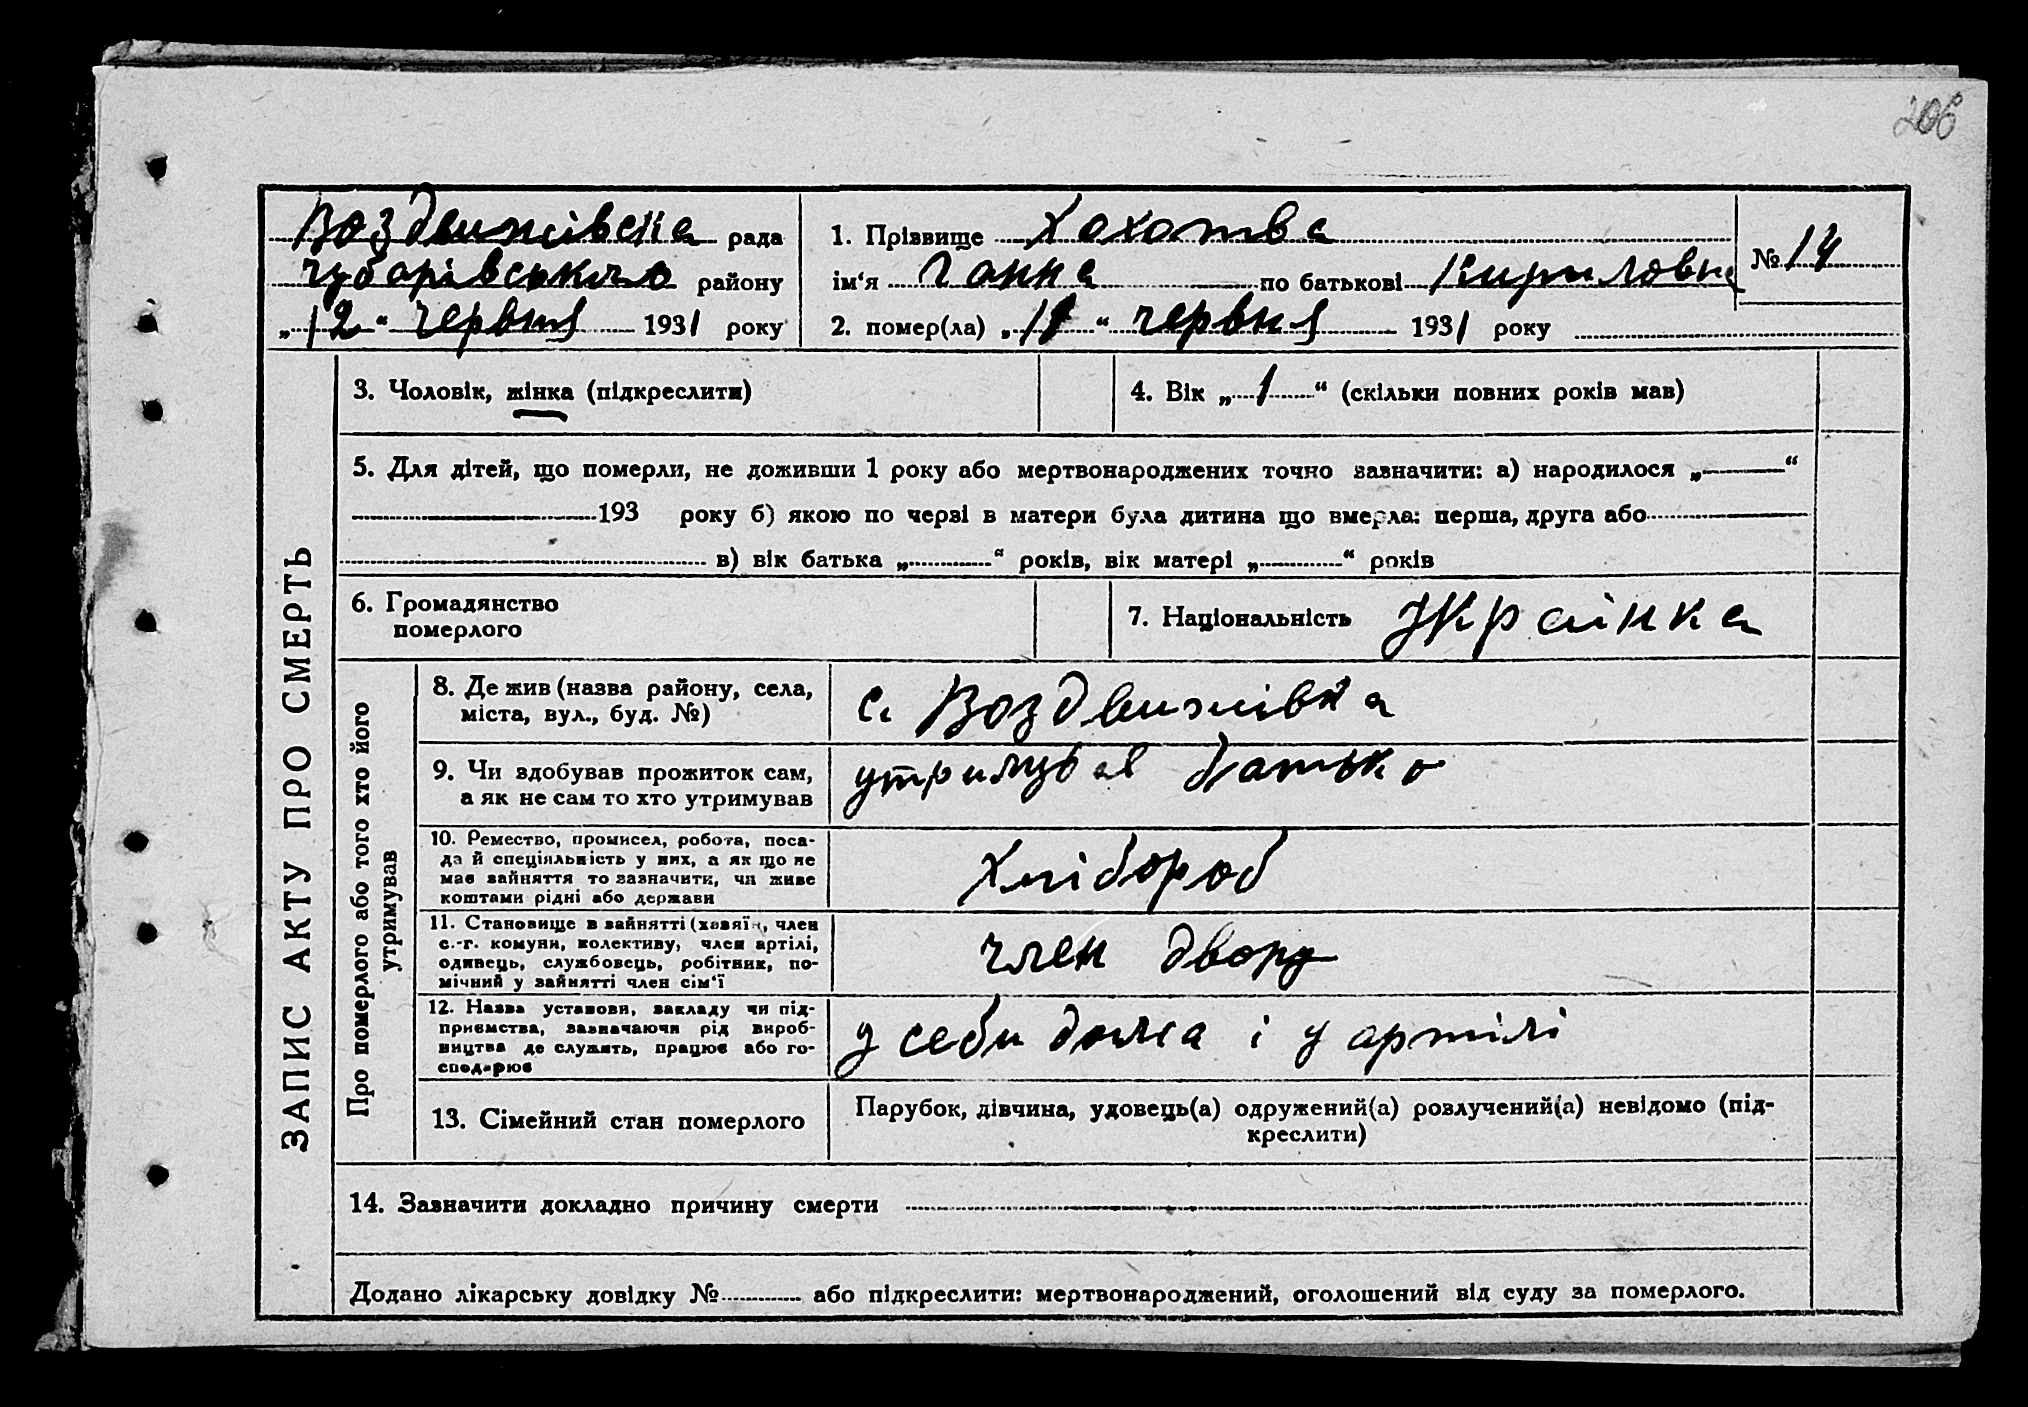 206
Воздвижівска рада
Чубарівського району
„12“ червня 1931 року
1. Прізвище Хохотва
ім‘я Ганна по батькові Кириловна
2. помер(ла) „11“ червня 1931 року
№ 14
ЗАПИС АКТУ ПРО СМЕРТЬ
3. Чоловік, жінка (підкреслити)
4. Вік „1“ (скільки повних років мав)
5. Для дітей, що померли, не доживши 1 року або мертвонароджених точно зазначити: а) народилося „ “
193 року б) якою по черзі в матери була дитина що вмерла: перша, друга або
в) вік батька „ “ років, вік матері „ “ років
6. Громадянство
померлого
7. Національність Українка
Про померлого або того хто його
утримував
8. Де жив (назва району, села,
міста, вул., буд. №)
с. Воздвижівка
9. Чи здобував прожиток сам,
а як не сам то хто утримував
утримував батько
10. Ремество, промисел, робота, поса-
да й спеціяльність у них, а як що не
має зайняття то зазначити, чи живе
коштами рідні або держави
Хлібороб
11. Становище в зайнятті (хазяїн, член
с.-г. комуни, колективу, член артілі,
одинець, службовець, робітник, по-
мічний у зайнятті член сім‘ї
член двору
12. Назва установи, закладу чи під-
приємства, зазначаючи рід вироб-
ництва де служить, працює або го-
сподарює
у себи дома і у артілі
13. Сімейний стан померлого
Парубок, дівчина, удовець(а) одружений(а) розлучений(а) невідомо (під-
креслити)
14. Зазначити докладно причину смерти
Додано лікарську довідку № або підкреслити: мертвонароджений, оголошений від суду за померлого.